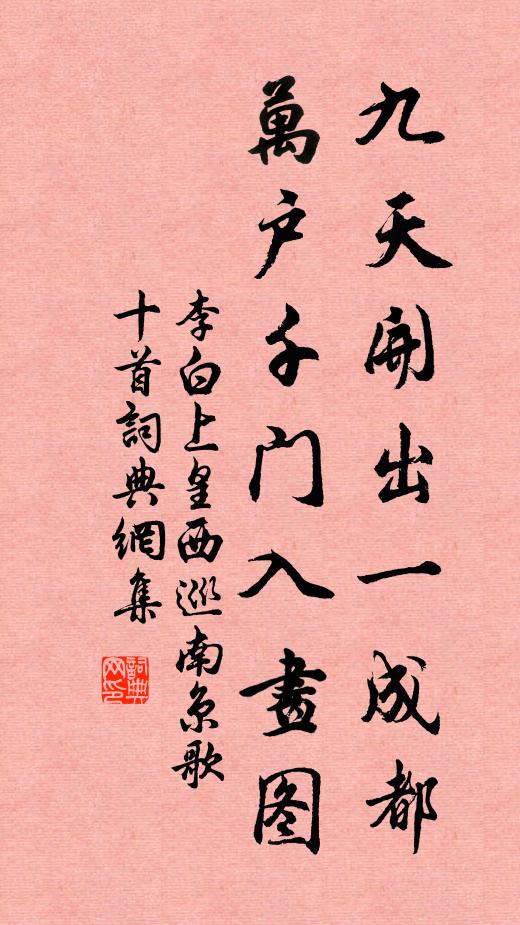 九天開出一成都
萬户千門入畫图
李白上皇西巡南京歌
十首詞典網集
詞典网印